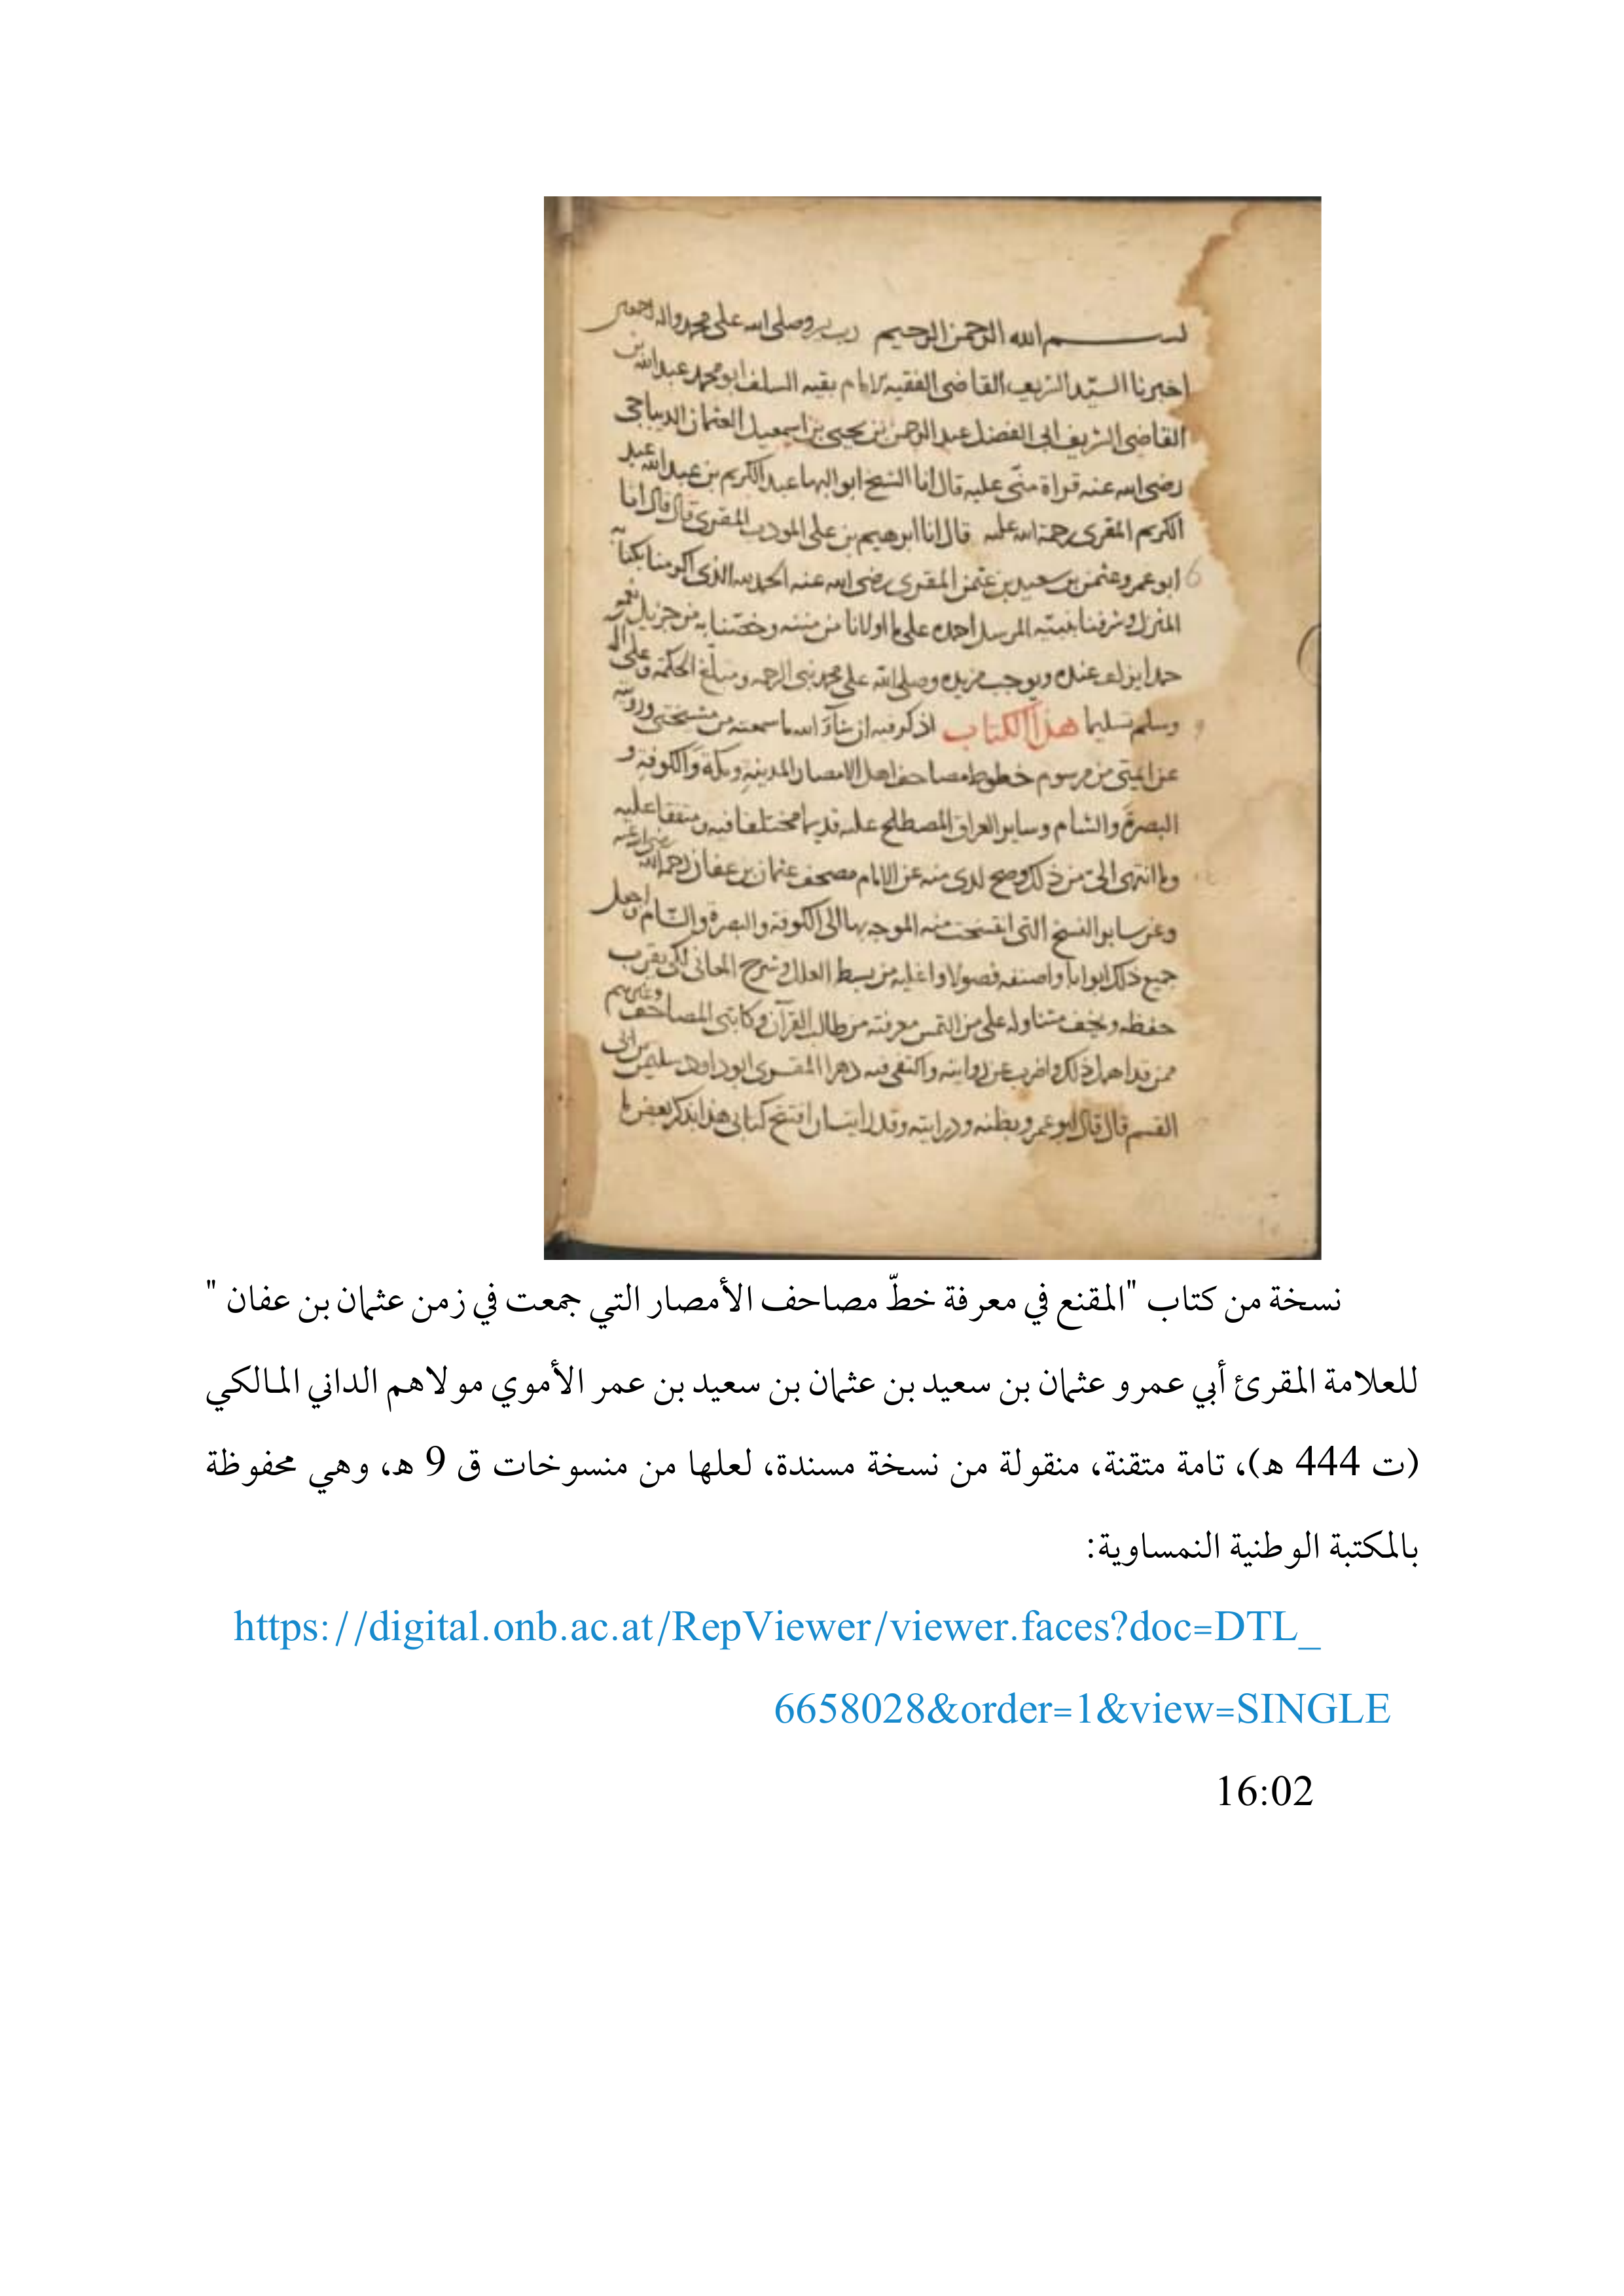 بســـم الله الرحمن الرحيم رب يسر وصلى الله على محمد واله اجمعين
اخبرنا السيد الشريف القاضى الفقيه الامام بقيه السلف ابو محمد عبد الله بن
القاضى الشريف ابى الفضل عبد الرحمن بن يحيى بن اسمعيل العثمان الديباجى
رضى الله عنه قراة منى عليه قال انا الشيخ ابو البها عبد الكريم بن عبد الله عبد
الكريم المقرى رحمة الله عليه قال انا ابرهيم بن على المودب المقرى قال قال انا
ابو عمرو عثمن بن سعيد بن عثمن المقرى رضى الله عنه الحمد لله الذى اكرمنا بكتابه
المنزل وشرفنا بنبيه المرسل احمده على ما اولانا من مننه وخصنا به من جزيل نعمه
حمدا يزلف عنده ويوجب مزيده وصلى الله على محمد نبى الرحمه ومبلغ الحكمة وعلى اله
وسلم تسليما هذا الكتاب اذكر فيه ان شآء الله ما سمعته من مشيختى ورويته
عن ايمتى من مرسوم خطوط مصاحف اهل الامصار المدينه ومكة والكوفة و
البصرة والشام وساير العراق المصطلح عليه قديما مختلفا فيه ومتفقا عليه
وما انتهى الى من ذلك وصح لدى منه عن الامام مصحف عثمان بن عفان رحمه الله رضى الله عنه
وعن ساير النسخ التى انتسخت منه الموجه بها الى الكوفة والبصرة والشام واجعل
جميع ذلك ابوابا واصنفه فصولا واخليه من بسط العلل وشرح المعانى لكى يقرب
حفظه ويخف متناوله على من التمس معرفته من طالب القرآن وكاتبى المصاحف وغيرهم
ممن قد اهمل ذلك واضرب عن روايته واكتفى فيه دهرا المقرى ابو داود سليمن بن ابى
القسم قال قال ابو عمرو بظنه ودرايته وقد رايت ان افتتح كتابى هذا بذكر بعض ما
نسخة من كتاب "المقنع في معرفة خطّ مصاحف الأمصار التي جمعت في زمن عثمان بن عفان "
للعلامة المقرئ أبي عمرو عثمان بن سعيد بن عثمان بن سعيد بن عمر الأموي مولاهم الداني المالكي
(ت 444 هـ)، تامة متقنة، منقولة من نسخة مسندة، لعلها من منسوخات ق 9 هـ، وهي محفوظة
بالمكتبة الوطنية النمساوية:
https://digital.onb.ac.at/RepViewer/viewer.faces?doc=DTL_
6658028&order=1&view=SINGLE
16:02